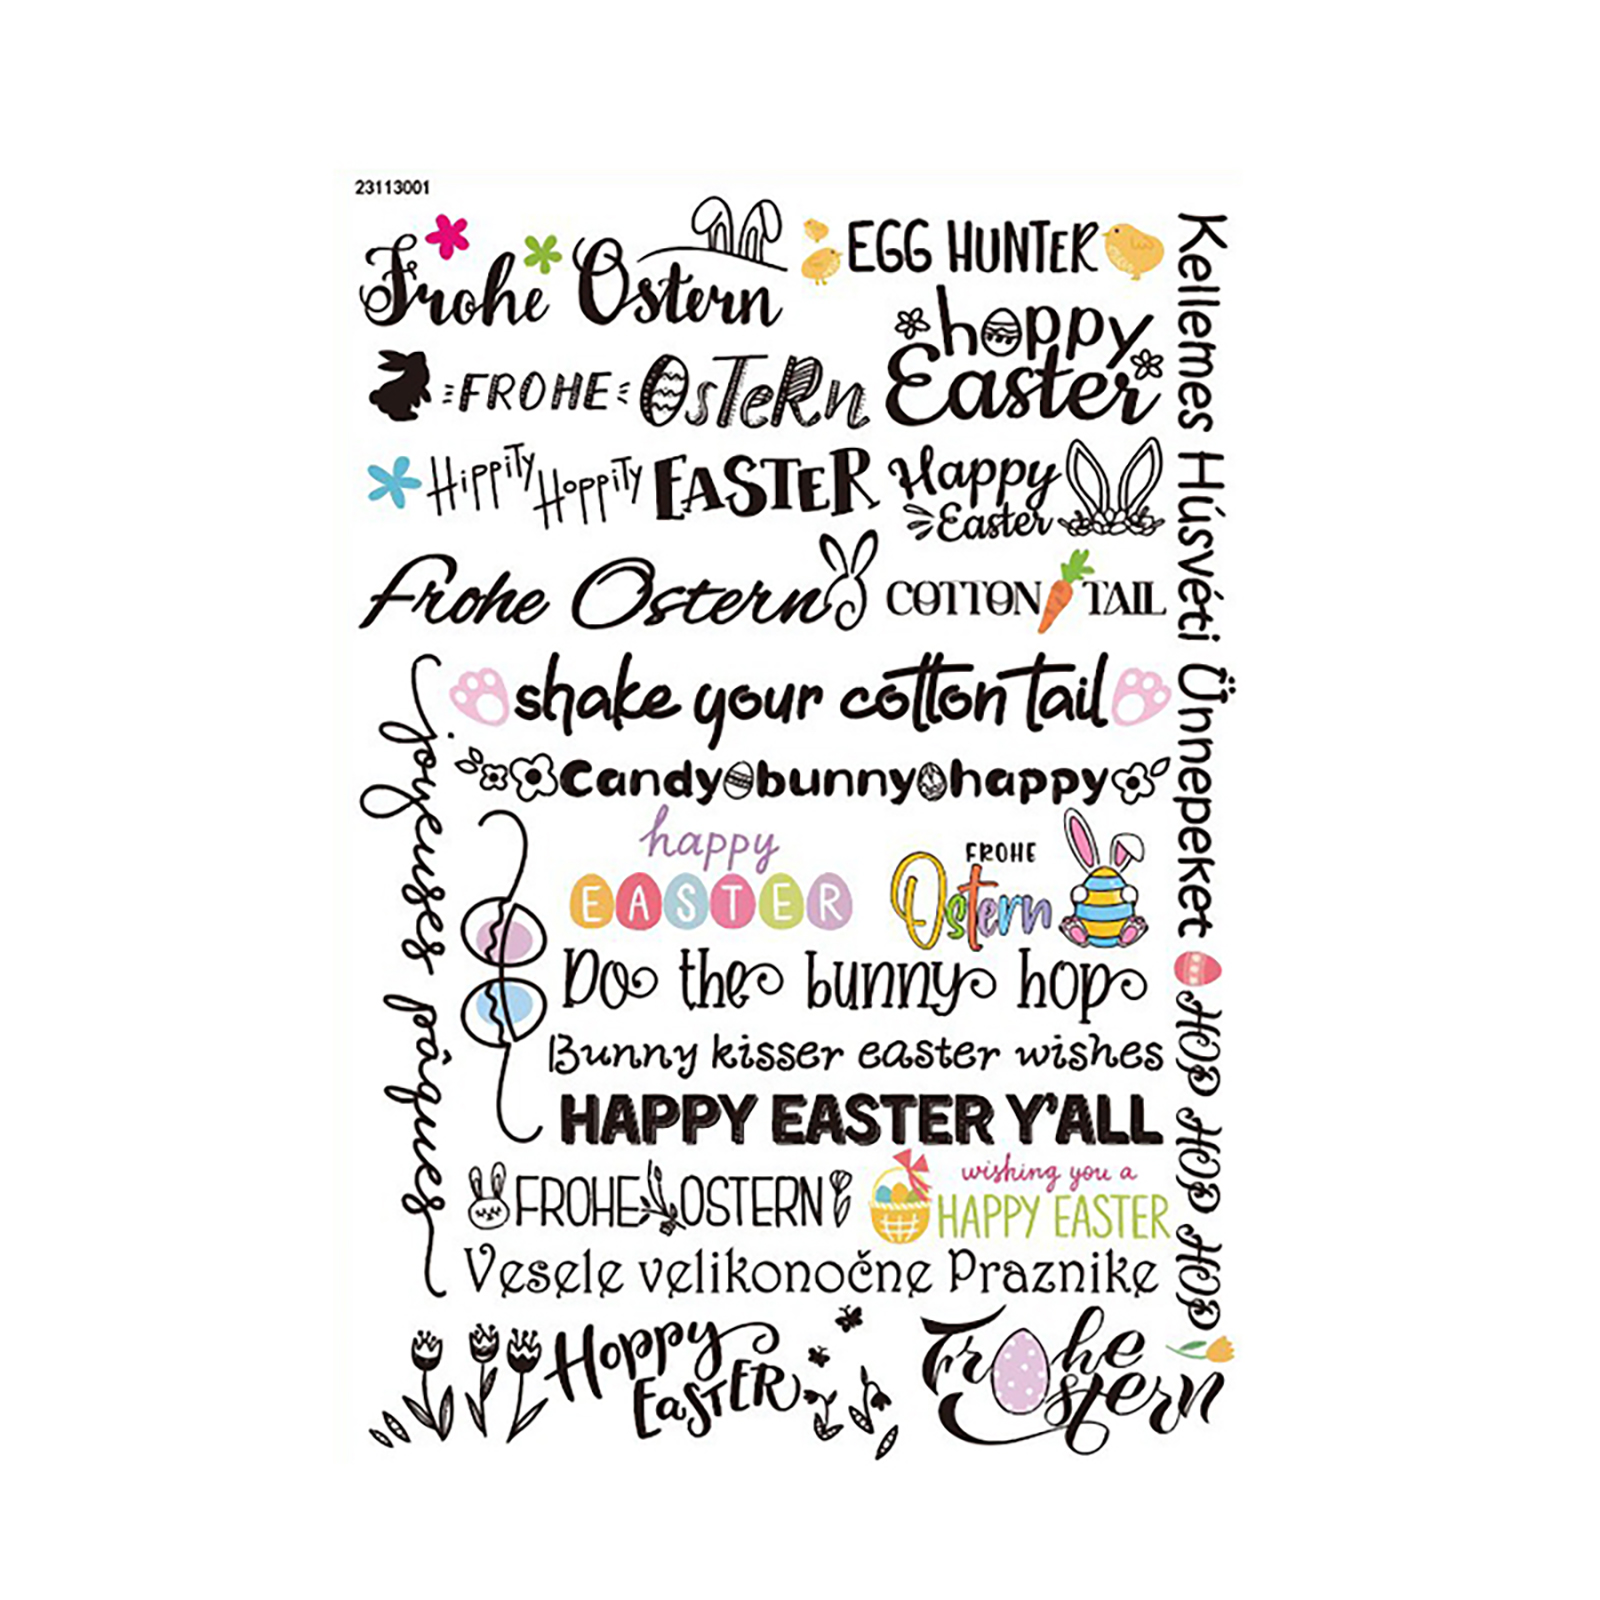 23113001
Frohe Ostern
EGG HUNTER
hoppy
Easter
FROHE OSTeRn
HippiTy HoppiTy EASTER
Happy
Easter
Frohe Ostern
COTTON TAIL
Kellemes Húsvéti Ünnepeket
shake your cotton tail
Candy bunny happy
joyeuses pâques
happy
EASTER
FROHE
Ostern
Do the bunny hop
Bunny kisser easter wishes
HAPPY EASTER Y'ALL
HOP HOP HOP
FROHE OSTERN
wishing you a
HAPPY EASTER
Vesele velikonočne Praznike
Hoppy
EaSTER
Frohe
Ostern